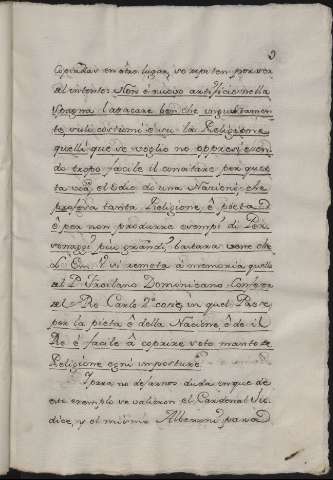 9
copiadas en otro lugar, se repiten por ser
al intento: Non è nuovo artificio nella
Spagna l'atacare ben che ingiustamen
te sui costumi e su la Religione
quelli che se voglio no oppressi essen
do tropo facile il concitare per ques
ta via, el odio de una Nazione, che
profesa tanta Religione, è pieta
è per non produrre esempi di Per
sonaggi più grandi, bastara che
V. Em. si remeta à memoria quello
al P. Froilano Domenicano Confesor
del Re Carlo 2.º cosi, in quel Paese
per la pieta è della Nacione, è de il
Re è facile à coprire soto manto de
Religione ogni imposture.
Y para no dexarnos duda en que de
este exemplo se valieron el Cardenal Giu
dice, y el mismo Alberoni para